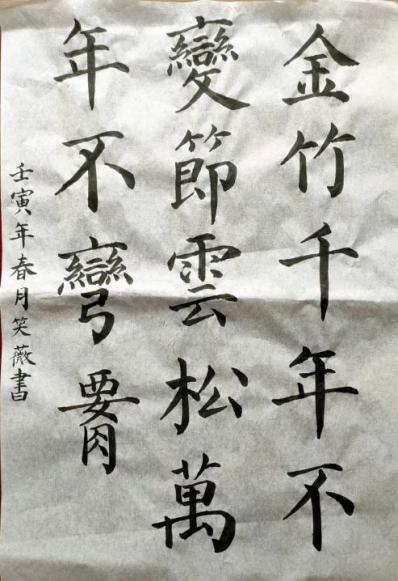 金竹千年不
變節雲松萬
年不彎腰
壬寅年春月笑薇書